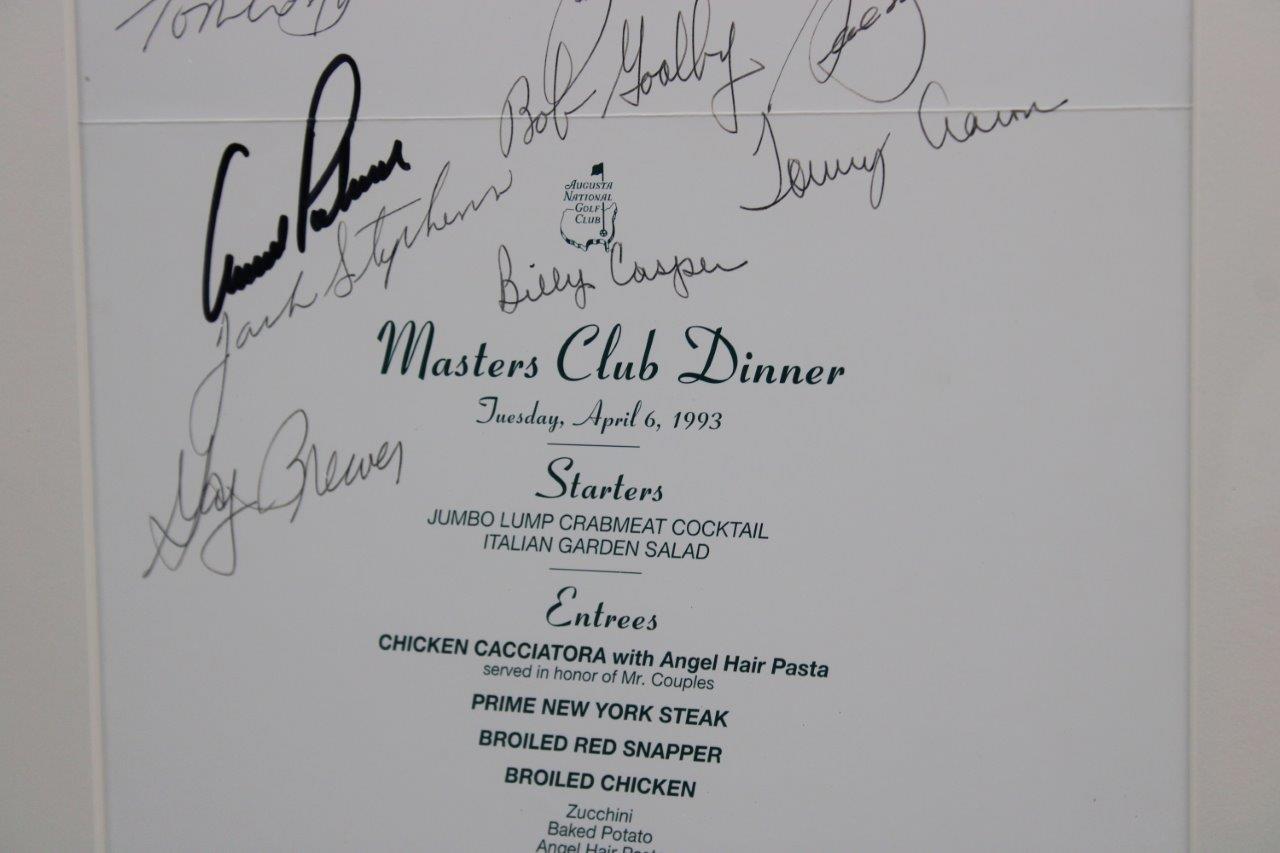 Bob Goalby
Tommy Aaron
Arnold Palmer
Jack Stephens
AUGUSTA
NATIONAL
GOLF
CLUB
Billy Casper
Masters Club Dinner
Tuesday, April 6, 1993
Gay Brewer
Starters
JUMBO LUMP CRABMEAT COCKTAIL
ITALIAN GARDEN SALAD
Entrees
CHICKEN CACCIATORA with Angel Hair Pasta
served in honor of Mr. Couples
PRIME NEW YORK STEAK
BROILED RED SNAPPER
BROILED CHICKEN
Zucchini
Baked Potato
Angel Hair